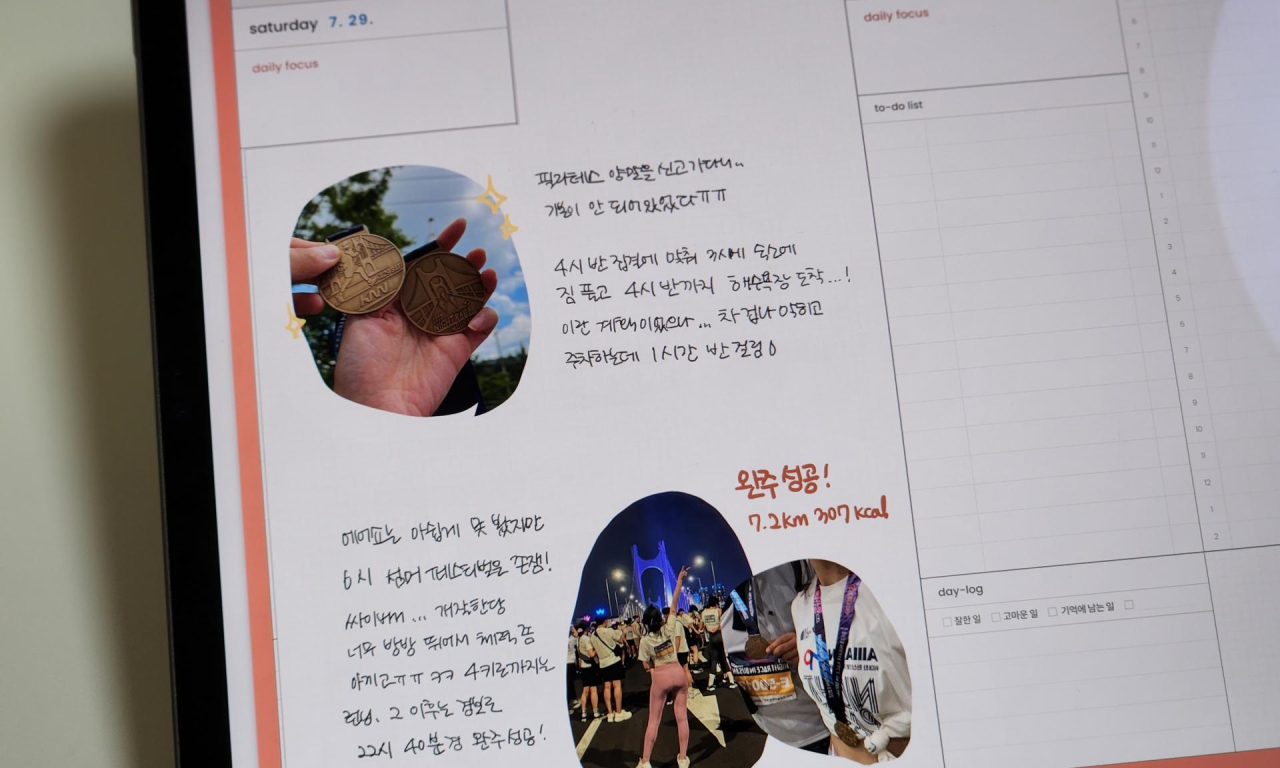 saturday 7. 29.
daily focus
필라테스 양말을 신고가다니..
개놀이 안 되어있었다ㅠㅠ
4시 반 집결에 맞춰 3시에 숙소에
짐 풀고 4시 반까지 해수욕장 도착...!
이란 계획이었으나... 차 겁나 막히고
주차하는데 1시간 반 걸림
완주 성공!
7.2km 307 kcal
아쉽게 못 봤지만
6시 썸머 페스티벌은 존잼!
싸이버거... 개작한당
너무 방방 뛰어서 체력 좀
아끼고ㅠㅠ ㅋㅋ 4키로까지는
런닝, 그 이후는 경보로
22시 40분경 완주성공!
KNN
daily focus
to-do list
6
7
8
9
10
11
12
1
2
3
4
5
6
7
8
9
10
11
12
1
2
day-log
잘한 일
고마운 일
기억에 남는 일